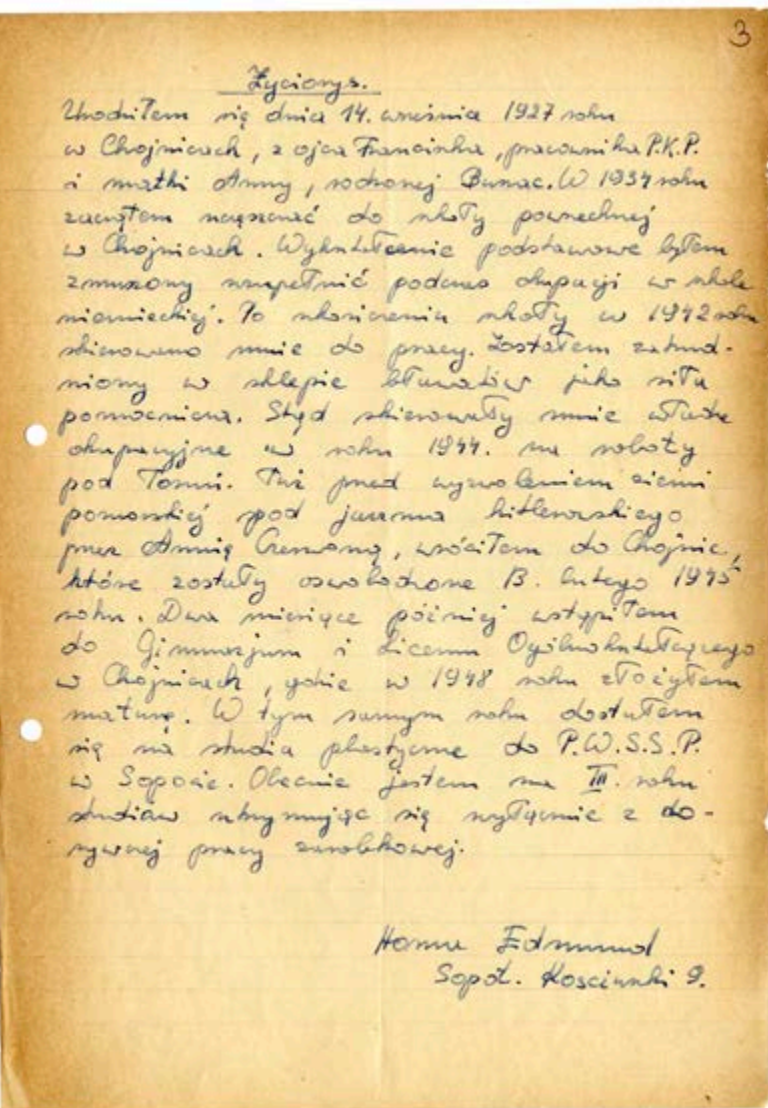 3
Życiorys.
Urodziłem się dnia 14. września 1927 roku
w Chojnicach, z ojca Franciszka, pracownika P.K.P.
i matki Anny, rodzonej Bunac. W 1934 roku
zacząłem uczęszczać do szkoły powszechnej
w Chojnicach. Wykształcenie podstawowe byłem
zmuszony uzupełnić podczas okupacji w szkole
niemieckiej. Po skończeniu szkoły w 1942 roku
skierowano mnie do pracy. Zostałem zatrud-
niony w sklepie bławatów jako siła
pomocnicza. Stąd skierowały mnie władze
okupacyjne w roku 1944. na roboty
pod Toruń. Tuż przed wyzwoleniem ziemi
pomorskiej spod jarzma hitlerowskiego
przez Armię Czerwoną, wróciłem do Chojnic,
które zostały oswobodzone 13. lutego 1945
roku. Dwa miesiące później wstąpiłem
do Gimnazjum i Liceum Ogólnokształcącego
w Chojnicach, gdzie w 1948 roku złożyłem
maturę. W tym samym roku dostałem
się na studia plastyczne do P.W.S.S.P.
w Sopocie. Obecnie jestem na III. roku
studiów utrzymując się wyłącznie z do-
rywczej pracy zarobkowej.
Edmund
Sopot. Kosciuszki 9.